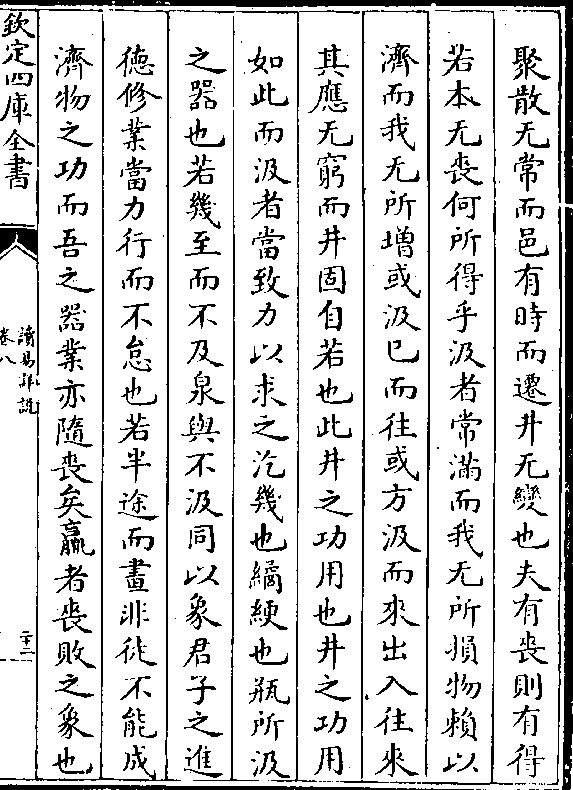 聚散无常而邑有時而遷井无變也夫有喪則有得
若本无喪何所得乎汲者常滿而我无所損物賴以
濟而我无所增或汲已而往或方汲而來出入往來
其應无窮而井固自若也此井之功用也井之功用
如此而汲者當致力以求之汔幾也繘綆也瓶所汲
之器也若幾至而不及泉與不汲同以象君子之進
徳修業當力行而不怠也若半途而畫非徒不能成
濟物之功而吾之器業亦隨喪矣羸者喪敗之象也
欽定四庫全書
讀易詳說
卷八
二十二